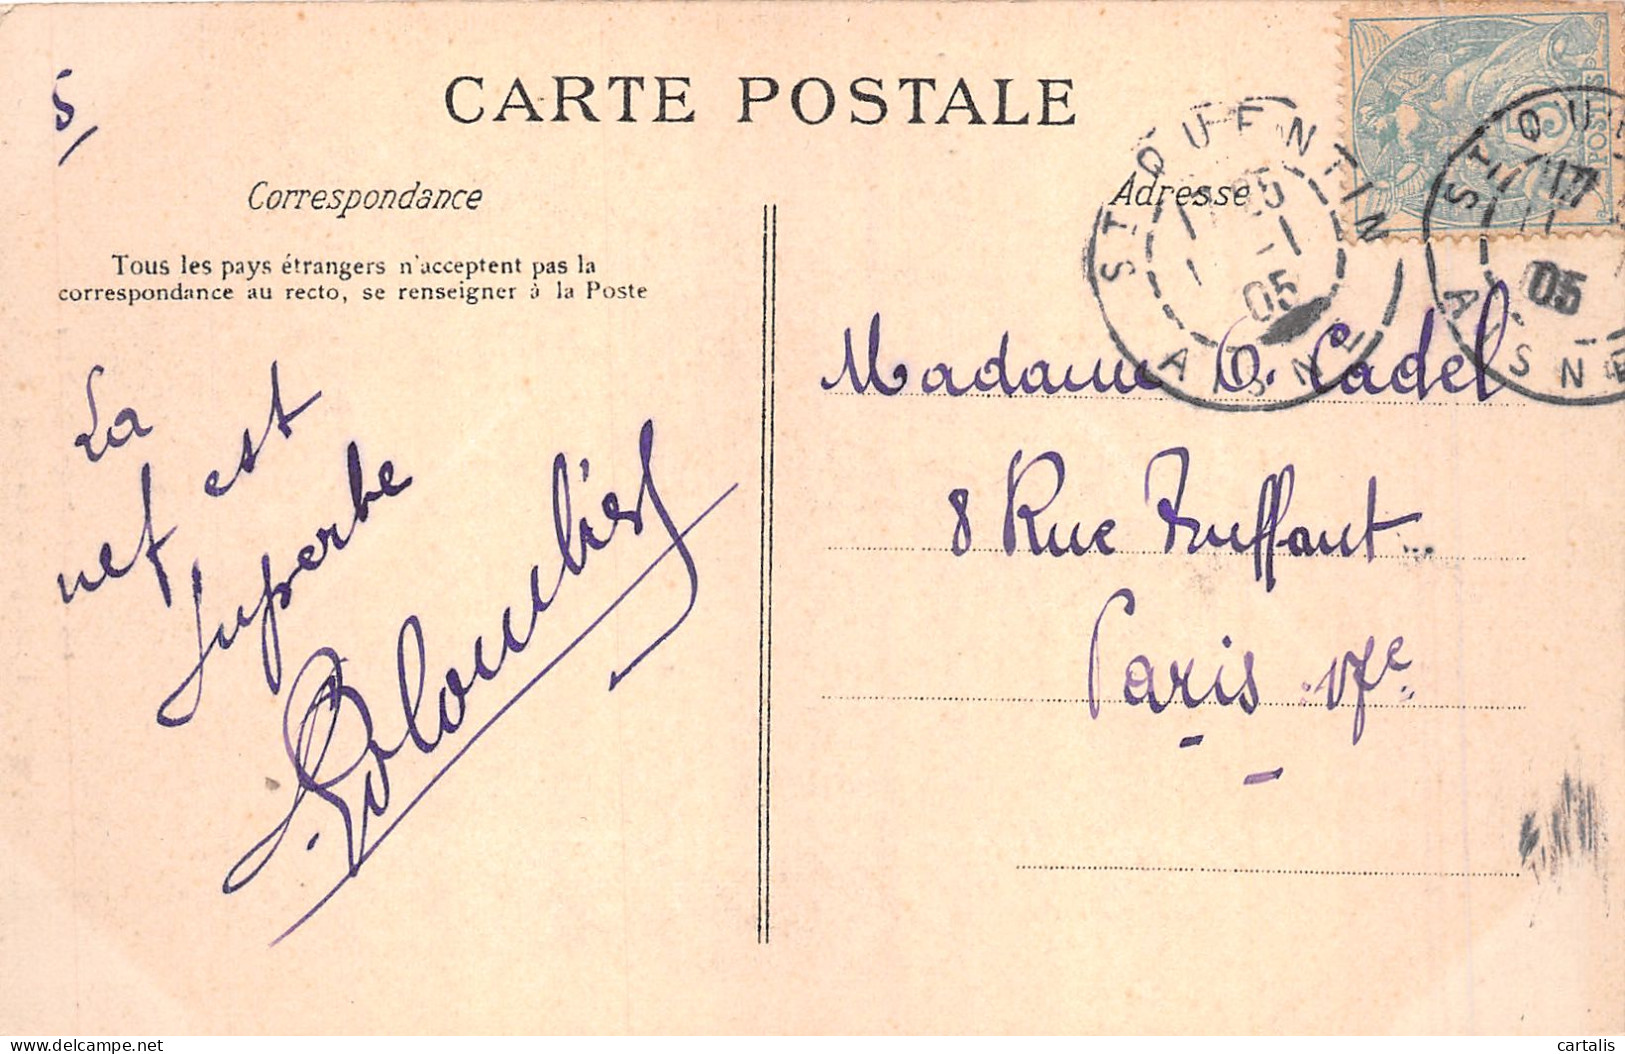 5
CARTE POSTALE
Correspondance
Tous les pays étrangers n'acceptent pas la
correspondance au recto, se renseigner à la Poste
La
nef est
superbe
Adresse
Madame O. Cadel
8 Rue Truffaut
Paris 17e
ST QUENTIN
25
-1
05
AISNE
ST QU
17
05
AISNE
5
POSTES
delcampe.net
cartalis